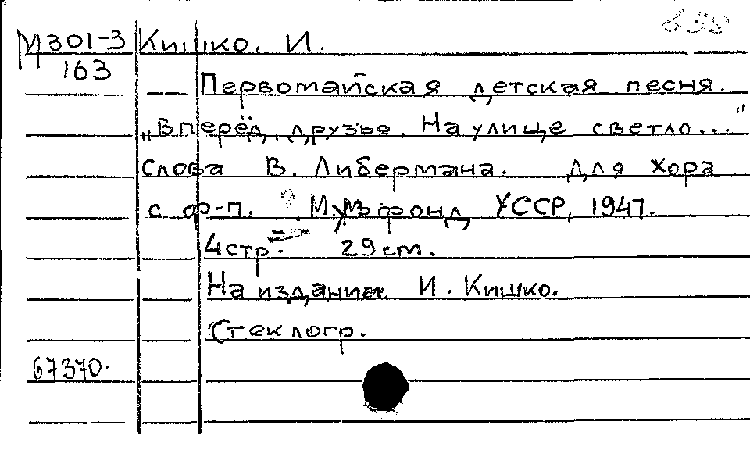 М301-3 Кишко. И.
163
— Первомайская детская песня.
„Вперёд, друзья. На улице светло..."
Слова В. Либермана. Для хора
с ф-п. Музфонд УССР, 1947.
4 стр. 29 cm.
На издании И. Кишко.
Стеклогр.
67370.